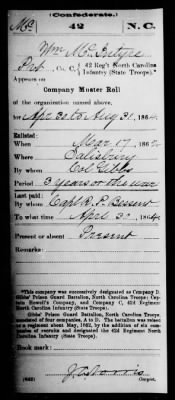 (Confederate.)
Mc 42 N.C.
Wm McIntyre
Pvt, Co. C, 42 Reg't North Carolina
Infantry (State Troops).*
Appears on
Company Muster Roll
of the organization named above,
for Apr 30 to Aug 31, 1864.
Enlisted:
When Mar 17, 1862
Where Salisbury
By whom Col Gibbs
Period 3 years or the war
Last paid:
By whom Capt R. P.
To what time April 30, 1864
Present or absent Present
Remarks:
*This company was successively designated as Company D,
Gibbs' Prison Guard Battalion, North Carolina Troops; Captain
Howell's Company, and Company C, 42d Regiment
North Carolina Infantry (State Troops).
Gibbs' Prison Guard Battalion, North Carolina Troops,
consisted of four companies, A to D. The battalion was raised
to a regiment about May, 1862, by the addition of six companies
of recruits and designated the 42d Regiment North
Carolina Infantry (State Troops).
Book mark:
(642)
Copyist.